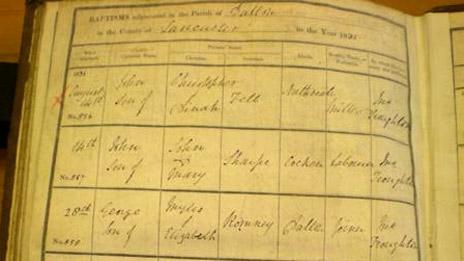 BAPTISMS solemnized in the Parish of Dalton
in the County of Lancaster in the Year 1831
When Baptized. Child's Christian Name. Parents Name. Christian. Surname. Abode.
1831
August 14th John Son of Christopher Dinah Fell Miller Jno Troughton
No. 856
14th John Son of John & Mary Sharpe Cocken Labourer Jno Troughton
No. 857
28th George Son of Myles Elizabeth Romney Dalton Joiner Jno Troughton
No. 858